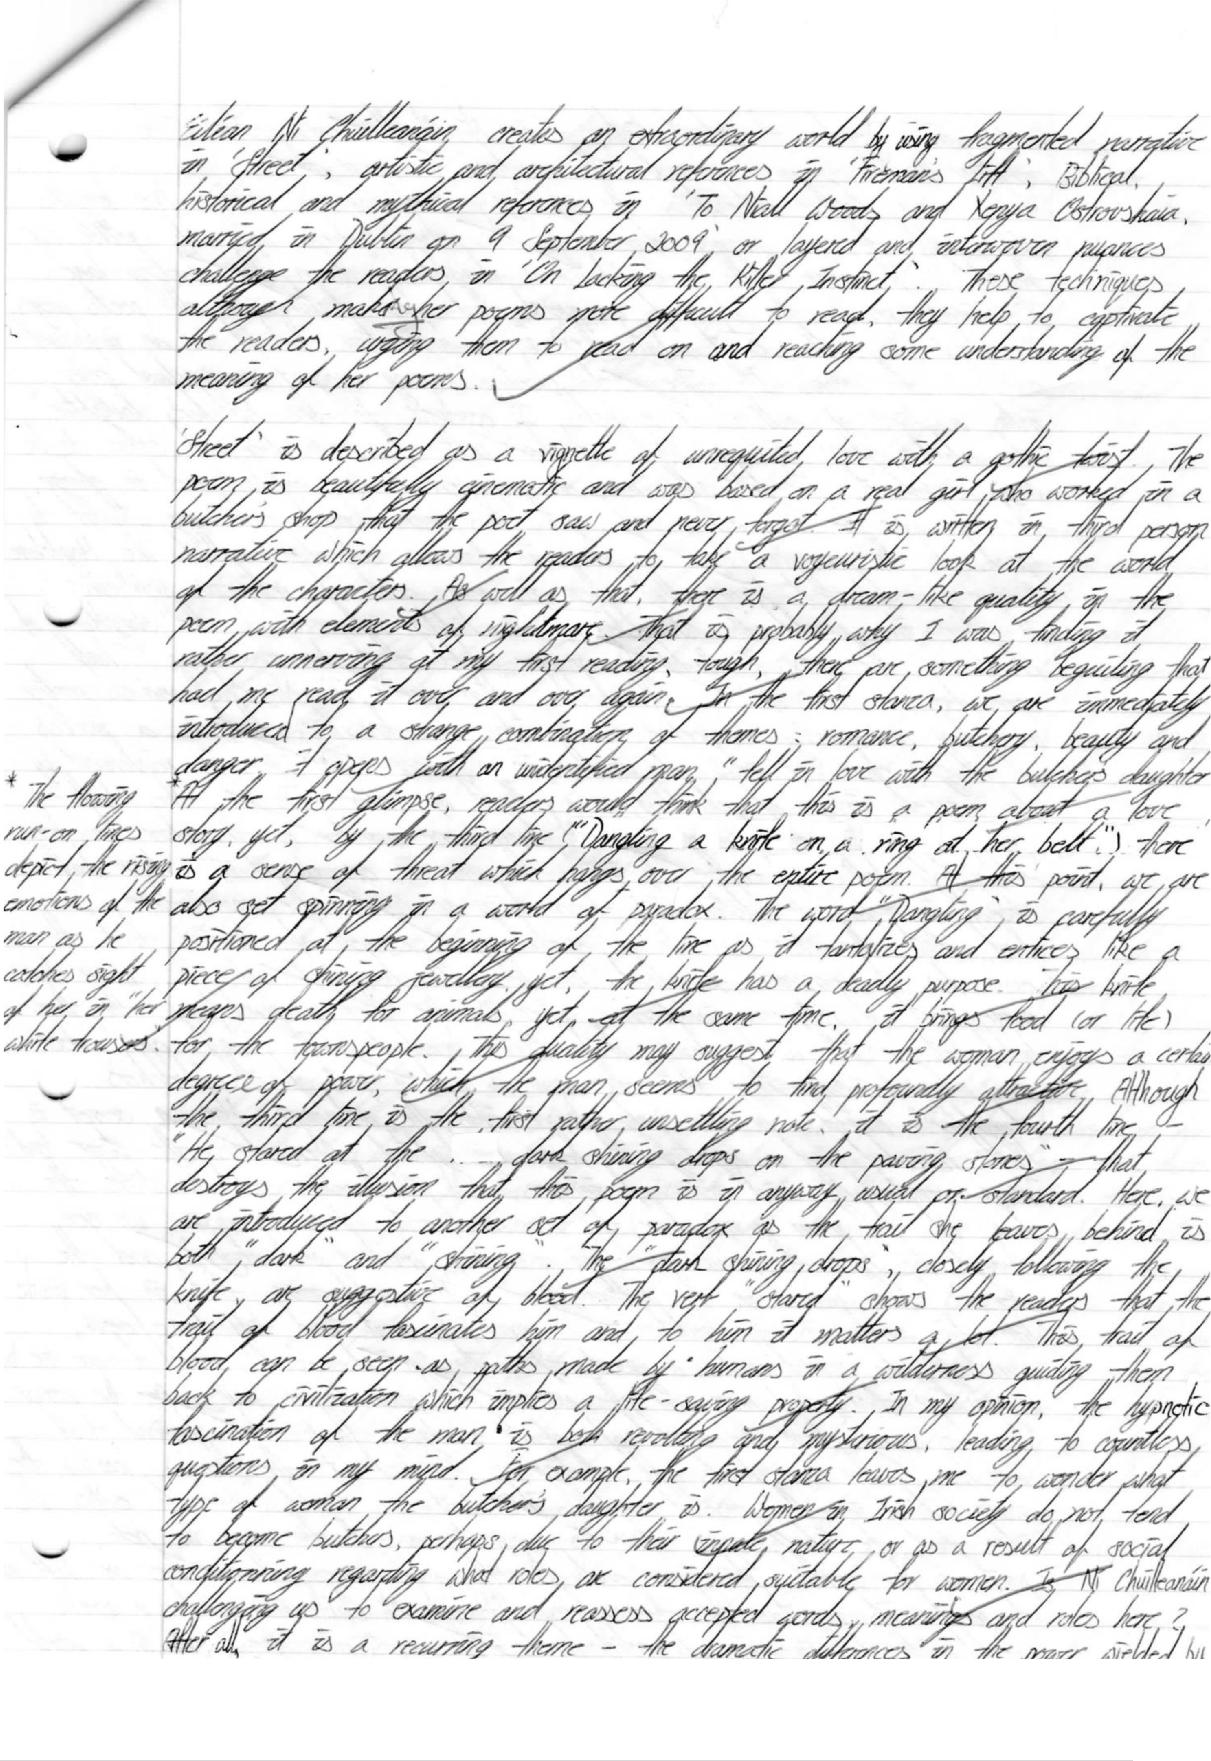 Eiléan Ní Chuilleanáin creates an extraordinary world by using fragmented narrative
in 'Street', artistic and architectural references in 'Fireman's Lift', Biblical,
historical and mythical references in 'To Niall Woods and Xenya Ostrovskaia,
married in Dublin on 9 September 2009' or layered and interwoven nuances
challenge the readers in 'On Lacking the Killer Instinct'. These techniques,
although make her poems more difficult to read, they help to captivate
the readers, urging them to read on and reaching some understanding of the
meaning of her poems.
'Street' is described as a vignette of unrequited love with a gothic twist. The
poem is beautifully cinematic and was based on a real girl who worked in a
butcher's shop that the poet saw and never forgot. It is written in third person
narrative which allows the readers to take a voyeuristic look at the world
of the characters. As well as that, there is a dream-like quality in the
poem with elements of nightmare. That is probably why I was finding it
rather unnerving at my first reading, tough, there are something beguiling that
had me read it over and over again. In the first stanza, we are immediately
introduced to a strange combination of themes: romance, butchery, beauty and
danger. It opens with an unidentified man "fell in love with the butcher's daughter
*At the first glimpse, readers would think that this is a poem about a love
story, yet, by the third line ("Dangling a knife on a ring at her belt".) there
is a sense of threat which hangs over the entire poem. At this point, we are
also set spinning in a world of paradox. The word "Dangling" is carefully
positioned at the beginning of the line as it tantalizes and entices like a
piece of shining jewellery, yet, the knife has a deadly purpose. This knife
means death for animals, yet, at the same time, it brings food (or life)
for the townspeople. This quality may suggest that the woman enjoys a certain
degree of power, which the man seems to find profoundly attractive. Although
the third line is the first rather unsettling note, it is the fourth line -
"He stared at the ... dark shining drops on the paving stones" - that
destroys the illusion that this poem is in anyway usual or standard. Here, we
are introduced to another set of paradox as the trail she leaves behind is
both "dark" and "shining". The "dark shining drops", closely following the
knife, are suggestive of blood. The verb "stared" shows the readers that the
trail of blood fascinates him and to him it matters a lot. This trail of
blood can be seen as paths made by humans in a wilderness guiding them
back to civilization which implies a life-saving property. In my opinion, the hypnotic
fascination of the man is both revolting and mysterious, leading to countless
questions in my mind. For example, the first stanza leaves me to wonder what
type of woman the butcher's daughter is. Women in Irish society do not tend
to become butchers, perhaps due to their innate nature, or as a result of social
conditionning regarding what roles are considered suitable for women. Is Ní Chuilleanáin
challenging us to examine and reassess accepted words, meanings and roles here?
After all, it is a recurring theme - the dramatic differences in the power wielded by
* The flowing
run-on lines
depict the rising
emotions of the
man as he
catches sight
of her in "her
white trousers.